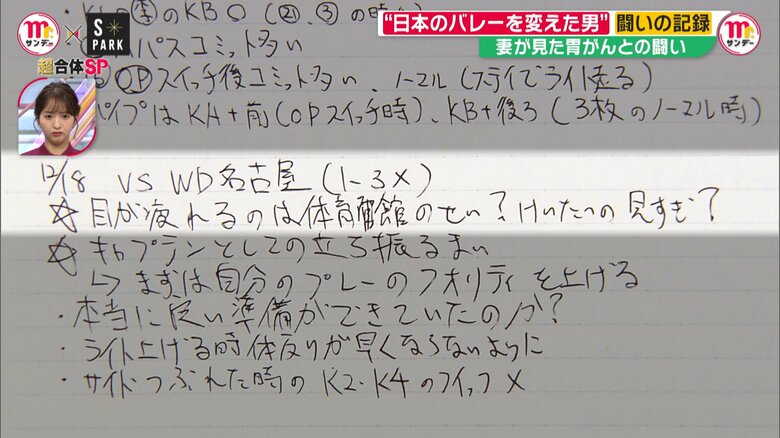 Mr.サンデー × S PARK
超合体SP
"日本のバレーを変えた男" 闘いの記録
妻が見た胃がんとの闘い
Mr.サンデー
のKB○ (㉑、③の時)
パスコミット多い
OPスイッチ後コミット多い、ノーマル(ステイでライト走る)
パイプはKA+前(OPスイッチ時)、KB+後ろ(3枚のノーマル時)
12/18 VS WD名古屋(1-3×)
☆目が疲れるのは体育館のせい?けいたいの見すぎ?
☆キャプテンとしての立ち振るまい
↳まずは自分のプレーのクオリティを上げる
・本当に良い準備ができていたのか?
・ライト上げる時体反りが早くならないように
・サイドつぶれた時のK2・K4の ×